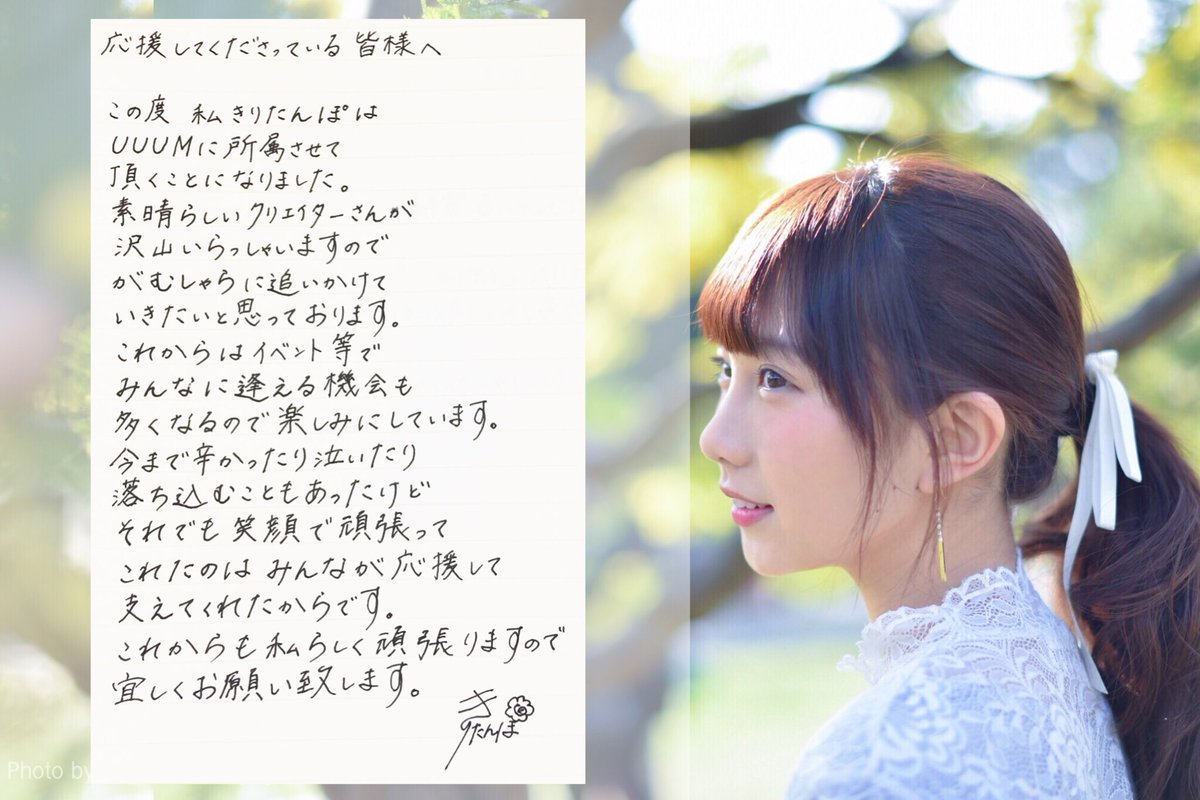 応援してくださっている皆様へ
この度 私きりたんぽは
UUUMに所属させて
頂くことになりました。
素晴らしいクリエイターさんが
沢山いらっしゃいますので
がむしゃらに追いかけて
いきたいと思っております。
これからはイベント等で
みんなに逢える機会も
多くなるので楽しみにしています。
今まで辛かったり泣いたり
落ち込むこともあったけど
それでも笑顔で頑張って
これたのは みんなが応援して
支えてくれたからです。
これからも私らしく頑張りますので
宜しくお願い致します。
きりたんぽ
Photo by